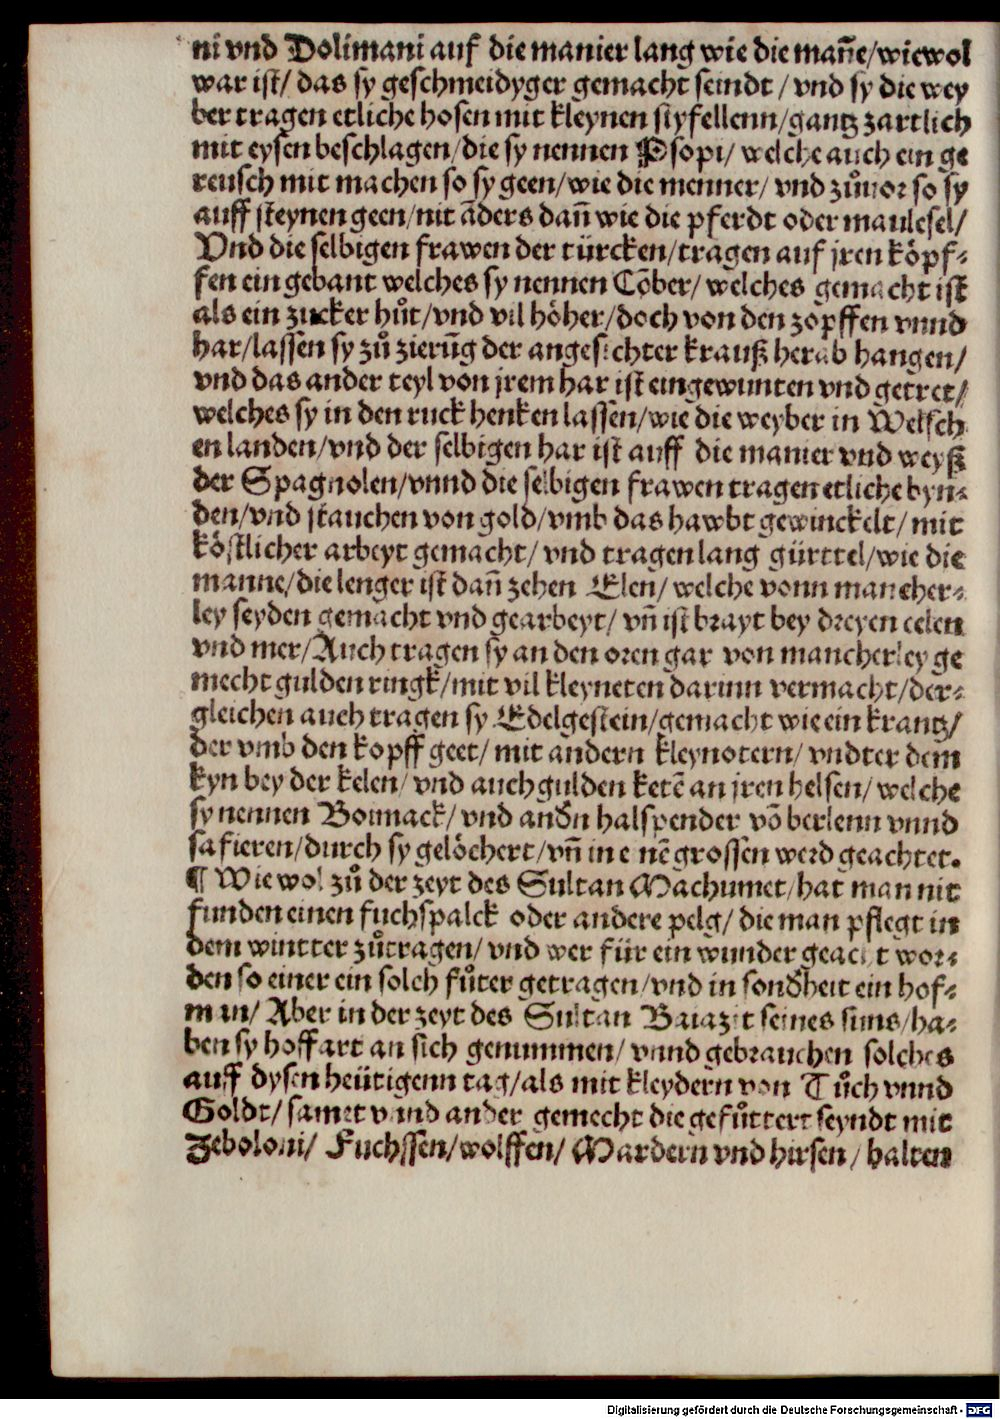 ni vnd Dolimani auf die manier lang wie die mañe/wiewol
war ist/ das sy geschmeidyger gemacht seindt / vnd sy die wey
ber tragen etliche hosen mit kleynen styfellenn/gantz zartlich
mit eysen beschlagen/die sy nennen Psopi/ welche auch ein ge
reusch mit machen so sy geen/wie die menner/ vnd zůuor so sy
auff steynen geen/nit ãders dañ wie die pferdt oder maulesel/
Vnd die selbigen frawen der türcken/tragen auf jren köpf⸗
fen ein gebant welches sy nennen Cõber/ welches gemacht ist
als ein zucker hůt/vnd vil höher/doch von den zopffen vnnd
har/lassen sy zů zierũg der angesichter krauß herab hangen/
vnd das ander teyl von jrem har ist eingewunten vnd getret/
welches sy in den ruck henken lassen/wie die weyber in Welsch
en landen/vnd der selbigen har ist auff die manier vnd weyß
der Spagnolen/vnnd die selbigen frawen tragen etliche byn⸗
den/vnd stauchen von gold/vmb das hawbt gewinckelt/ mit
köstlicher arbeyt gemacht/ vnd tragen lang gürttel/wie die
manne/die lenger ist dañ zehen Elen/ welche vonn mancher⸗
ley seyden gemacht vnd gearbeyt/ vñ ist brayt bey dreyen eelen
vnd mer/Auch tragen sy an den oren gar von mancherley ge
mecht gulden ringk/mit vil kleyneten darinn vermacht/der⸗
gleichen auch tragen sy Edelgestein/gemacht wie ein krantz/
der vmb den kopff geet/ mit andern kleynotern/ vndter dem
kyn bey der kelen/ vnd auch gulden ketẽ an jren helsen/ welche
sy nennen Bonnack/ vnd andn halspender võ berlenn vnnd
safieren/durch sy gelöchert/vñ in e nẽ grossen werd geachtet.
¶ Wie wol zů der zeyt des Sultan Machumet/hat man nit
funden einen fuchspalck oder andere pelg/ die man pflegt in
dem wintter zůtragen/ vnd wer für ein wunder geacht wor⸗
den so einer ein solch fůter getragen/vnd in sondheit ein hof⸗
man/ Aber in der zeyt des Sultan Baiazit seines suns/ha⸗
ben sy hoffart an sich genummen/ vnnd gebrauchen solches
auff dysen heütigenn tag/als mit kleydern von Tůch vnnd
Goldt/ samet vnnd ander gemecht die gefůttert seyndt mit
Zeboloni/ Fuchssen/wolffen/ Mardern vnd hirsen/ halten
Digitalisierung gefördert durch die Deutsche Forschungsgemeinschaft - DFG